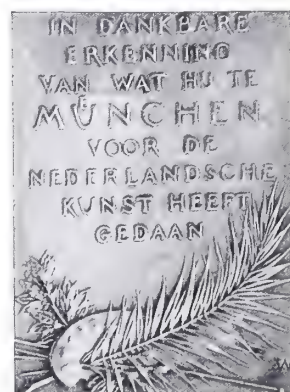 IN DANKBARE
ERKENNING
VAN WAT HIJ TE
MÜNCHEN
VOOR DE
NEDERLANDSCHE
KUNST HEEFT
GEDAAN